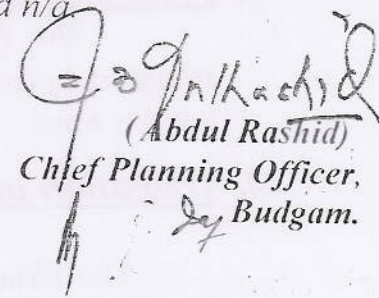 n/a
(Abdul Rashid)
Chief Planning Officer,
Budgam.